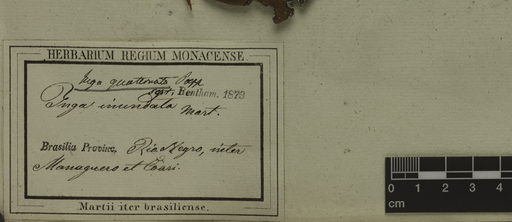 HERBARIUM REGIUM MONACENSE.
Inga quaternata Popp
scr. Bentham. 1873
Inga inundata Mart.
Brasilia Provinc. Rio Negro, inter
Managuero et Coari.
Martii iter brasiliense.
0 1 2 3 4
cm